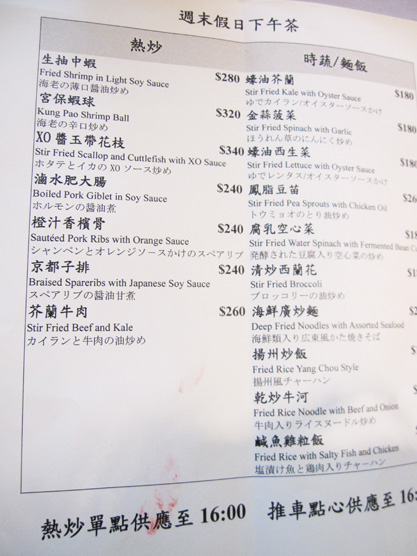 週末假日下午茶
熱炒
生抽中蝦 $280
Fried Shrimp in Light Soy Sauce
海老の薄口醤油炒め
宮保蝦球 $320
Kung Pao Shrimp Ball
海老の辛口炒め
XO 醬玉帶花枝 $340
Stir Fried Scallop and Cuttlefish with XO Sauce
ホタテとイカの XO ソース炒め
滷水肥大腸 $240
Boiled Pork Giblet in Soy Sauce
ホルモンの醤油煮
橙汁香檳骨 $240
Sautéed Pork Ribs with Orange Sauce
シャンペンとオレンジソースかけのスペアリブ
京都子排 $240
Braised Spareribs with Japanese Soy Sauce
スペアリブの醤油甘煮
芥蘭牛肉 $260
Stir Fried Beef and Kale
カイランと牛肉の油炒め
時蔬/麵飯
蠔油芥蘭 $180
Stir Fried Kale with Oyster Sauce
ゆでカイラン/オイスターソースかけ
金蒜菠菜 $180
Stir Fried Spinach with Garlic
ほうれん草のにんにく炒め
蠔油西生菜 $180
Stir Fried Lettuce with Oyster Sauce
ゆでレンタス/オイスターソースかけ
鳳脂豆苗
Stir Fried Pea Sprouts with Chicken Oil
トウミョオのとり油炒め
腐乳空心菜
Stir Fried Water Spinach with Fermented Bean
発酵された豆腐入り空心菜の炒め
清炒西蘭花
Stir Fried Broccoli
ブロッコリーの油炒め
海鮮廣炒麵
Deep Fried Noodles with Assorted Seafood
海鮮類入り広東風かた焼きそば
揚州炒飯
Fried Rice Yang Chou Style
揚州風チャーハン
乾炒牛河
Fried Rice Noodle with Beef and Onion
牛肉入りライスヌードル炒め
鹹魚雞粒飯
Fried Rice with Salty Fish and Chicken
塩漬け魚と鶏肉入りチャーハン
熱炒單點供應至 16:00 推車點心供應至 16: